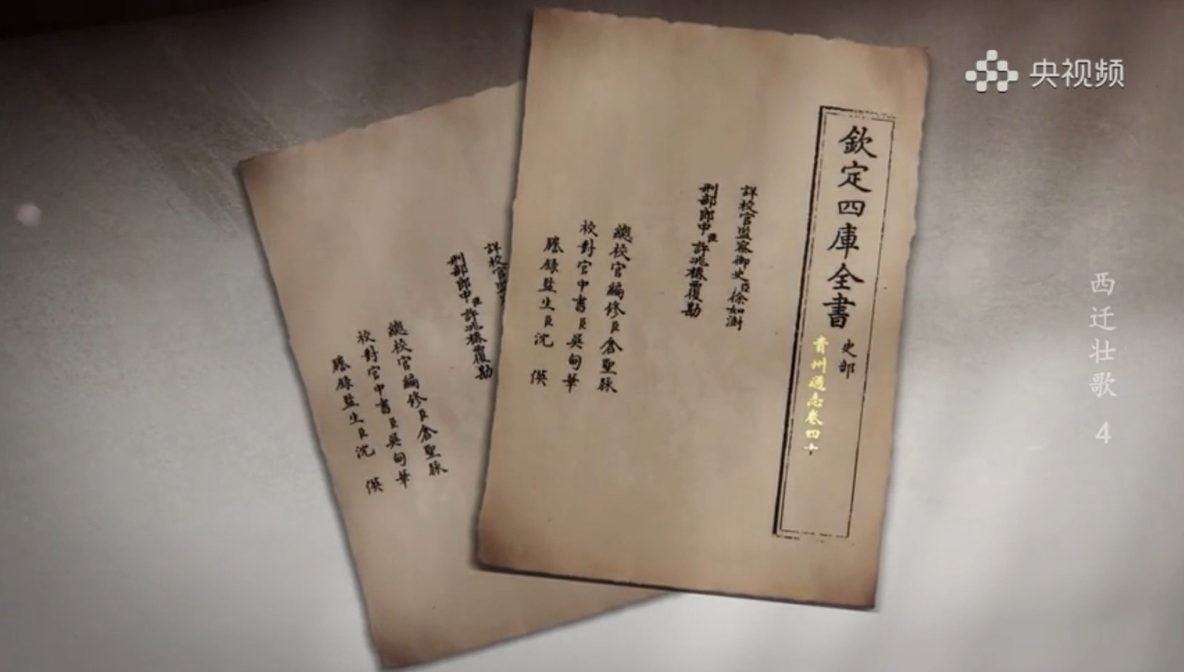 央视频
西迁壮歌 4
欽定四庫全書
史部
貴州通志卷四十
詳校官監察御史臣徐如澍
刑部郎中臣許兆椿覆勘
總校官編修臣倉聖脉
校對官中書臣吳甸華
謄錄監生臣沈 僙
詳校官監
刑部郎中臣許兆椿覆勘
總校官編修臣倉聖脉
校對官中書臣吳甸華
謄錄監生臣沈 僙